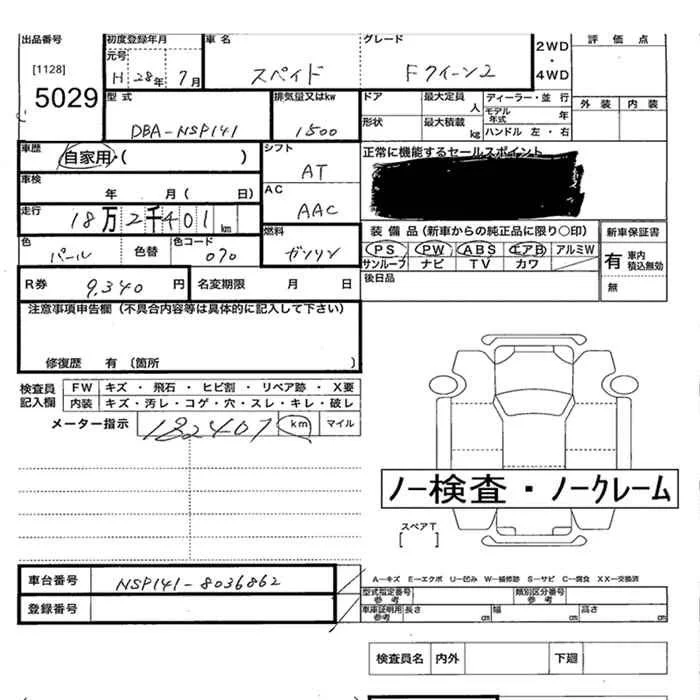 出品番号 初度登録年月 車名 グレード 2WD・4WD 評価点
[1128] 元号 H 28年 7月 スペイド Fクイーン2
5029 外装 内装
型式 排気量又はkw ドア 最大定員 人 ディーラー・並行
モデル年式 年
DBA-NSP141 1500 形状 最大積載 kg ハンドル 左・右
車歴 自家用・( ) シフト AT 正常に機能するセールスポイント
車検 年 月( 日) AC AAC
走行 18万2千401 km 装備品(新車からの純正品に限り○印) 新車保証書
色 パール 色替 色コード 070 燃料 ガソリン PS PW ABS エアB アルミW 有 車内積込無効
サンルーフ ナビ TV カワ
R券 9,340円 名変期限 月 日 後日品 無
注意事項申告欄(不具合内容等は具体的に記入して下さい)
修復歴 有(箇所 )
検査員記入欄 FW キズ・飛石・ヒビ割・リペア跡・X要
内装 キズ・汚レ・コゲ・穴・スレ・キレ・破レ
メーター指示 182401 km マイル
ノー検査・ノークレーム
スペアT
[ ]
車台番号 NSP141-8036862 A-キズ E-エクボ U-凹み W-補修跡 S-サビ C-腐食 XX-交換済
型式指定番号参考 類別区分番号参考
登録番号 車庫証明用参考 長さ cm 幅 cm 高さ cm
検査員名 内外 下廻